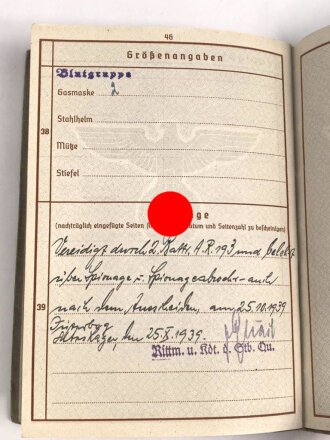 46
Größenangaben
Blutgruppe
Gasmaske 2
Stahlhelm
38
Mütze
Stiefel
ge
(nachträglich eingefügte Seiten sind mit Datum und Seitenzahl zu bescheinigen)
Vereidigt durch 2. Battr. A.R. 193 und belehrt
über Spionage u. Spionageabwehr - auch
39
nach dem Ausscheiden, am 25.10.1939
Jüterbog
den 25.X.1939.
Rittm. u. Kdt. d. Stb. Qu.